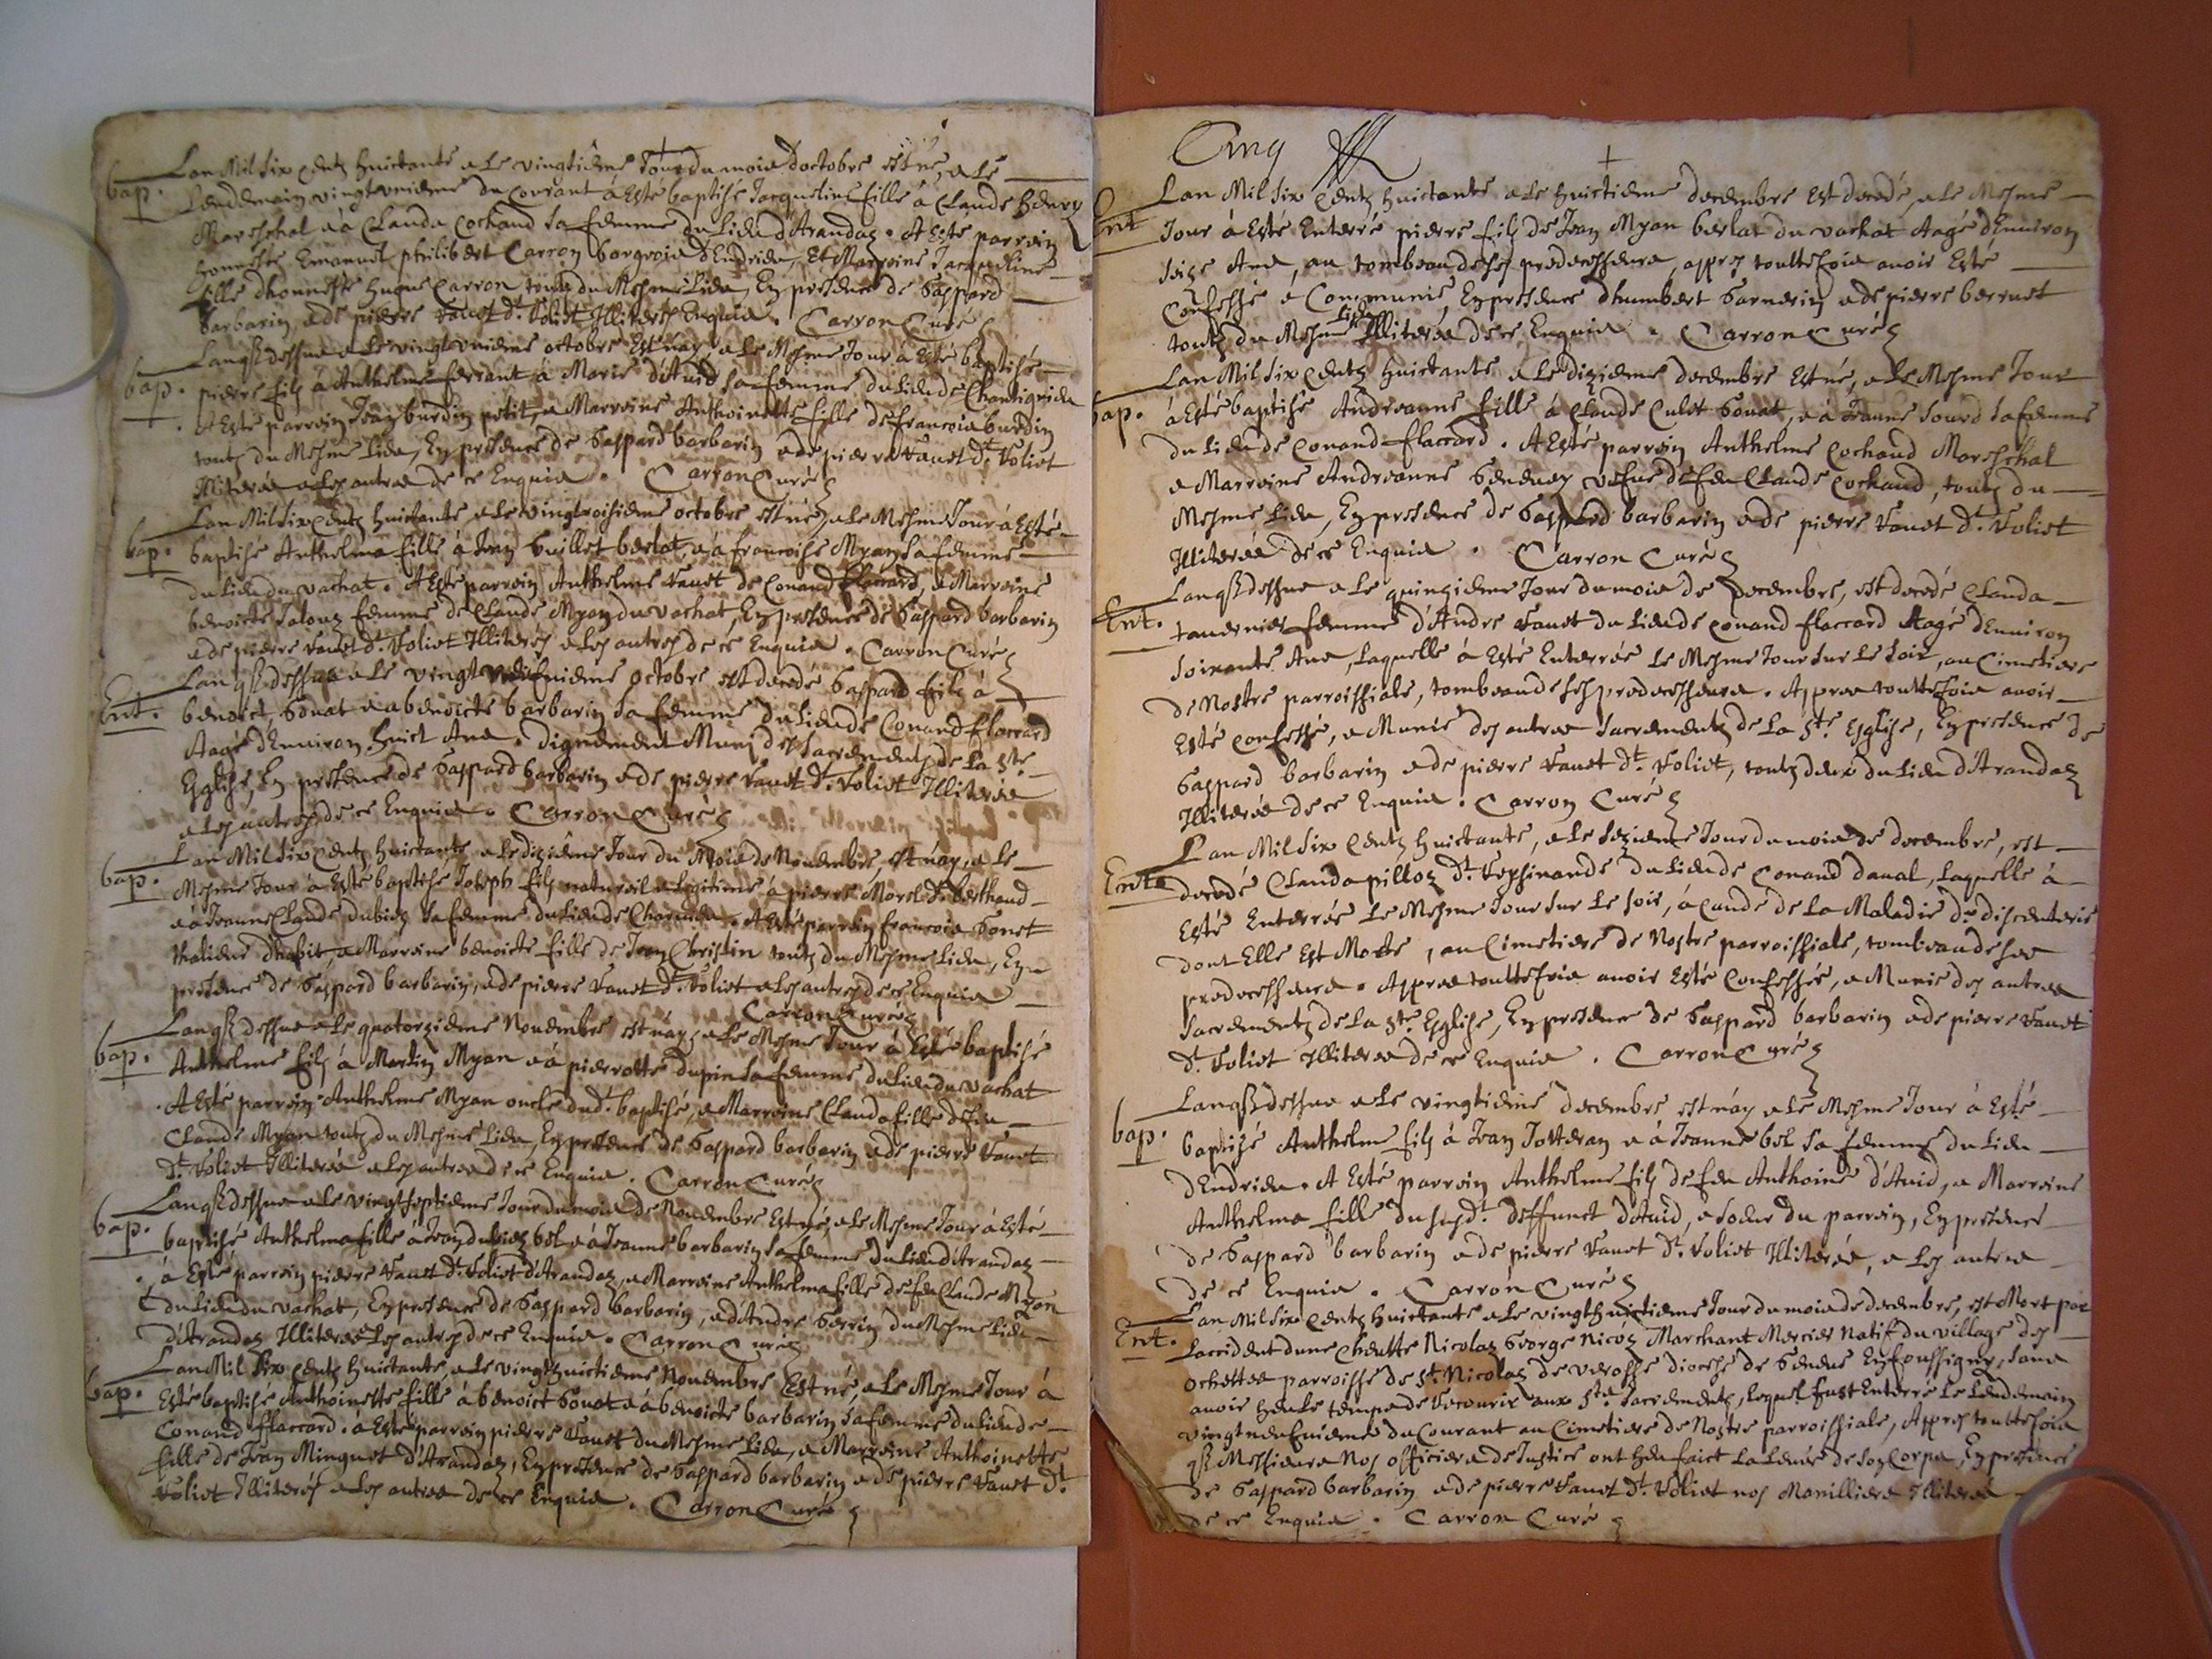 bap. Lan Mil Six Centz huictante & le vingtiéme Jour du mois doctobre est né, & le
Lendemain vingt uniéme du Courant à Esté baptisé Jacqueline fille à Claude henry
Mareschal & à Clauda Cochand sa femme du lieu d'Arandaz. A Esté parrein
honneste Emanuel philibert Carron borgeois d'Endrieu, Et Marreine Jacqueline
fille dhonneste hugue Carron toutz du Mesme Lieu, En presence de Gaspard
barbarin & de pierre vanet dt. voliet Illiterés Enquis. Carron Curé
bap. Lan qz dessus & le vingt uniéme octobre Est nay, & le Mesme Jour à Esté baptisé
pierre filz à Anthelme ferrant & à Marie d'Avid sa femme du lieu de Chantignieu
A Esté parrein Jean burdin petit, & Marreine Anthoinette fille de françois burdin
toutz du Mesme Lieu, En presence de Gaspard barbarin & de pierre vanet dt. voliet
Illiterés & les autres de ce Enquis. Carron Curé
bap. Lan Mil Six Centz huictante & le vingtroisiéme octobre est né, & le Mesme Jour à Esté
baptisé Anthelma fille à Jean Guillet berlat, & à françoise Myan sa femme
du lieu du vachat. A Esté parrein Anthelme vanet de Conand flaccard, & Marreine
benoicte Jaloux femme de Claude Myan du vachat, En presence de Gaspard barbarin
& de pierre vanet dt. voliet Illiterés & les autres de ce Enquis. Carron Curé
Ent. Lan qz dessus & le vingt neufviéme octobre est decedé Gaspard filz à
benoict Gonat & a benoicte barbarin sa femme du lieu de Conand flaccard
Aagé d'Environ huict Ans. dignement Muni des Sacrementz de la Ste
Eglise, En presence de Gaspard barbarin & de pierre vanet dt. voliet Illiterés
& les autres de ce Enquis. Carron Curé
bap. Lan Mil Six Centz huictante, & le diziéme Jour du Mois de Novembre, est nay, & le
Mesme Jour à Esté baptisé Joseph filz naturel & Legitime à pierre Morel dt. berthaud
& à Jeanne Claude dubiez sa femme du lieu de Charvieu. A Esté parrein francois Gonet
dhabit, & Marreine benoicte fille de Jean Christin toutz du Mesme Lieu, En
presence de Gaspard barbarin, & de pierre vanet dt. voliet & les autres de ce Enquis
Carron Curé
bap. Lan qz dessus & le quatorziéme Novembre est náy, & le Mesme Jour à Esté baptisé
Anthelme filz à Martin Myan & à pierrotte dupin sa femme, du lieu du vachat
A Esté parrein Anthelme Myan oncle dudt. baptisé, & Marreine Clauda fille de feu
Claude Myan toutz du Mesme Lieu, En presence de Gaspard barbarin & de pierre vanet
dt. voliet Illiterés & les autres de ce Enquis. Carron Curé
bap. Lan qz dessus & le vingt septiéme Jour du mois de Novembre Est né, & le Mesme Jour à Esté
baptisé Anthelma fille à Jean dubiez bel & à Jeanne barbarin sa femme du lieu d'Arandaz
à Esté parrein pierre vanet dt. voliet d'Arandaz, & Marreine Anthelma fille de feu Claude Myan
du lieu du vachat, En presence de Gaspard barbarin, & d'Andre Perrin du Mesme Lieu
d'Arandaz Illiterés & les autres de ce Enquis. Carron Curé
bap. Lan Mil Six Centz huictante, & le vingt huictiéme Novembre Est né & le Mesme Jour à
Esté baptisé Anthoinette fille à benoict Gonat & à benoicte barbarin sa femme du lieu de
Conand flaccard. à Esté parrein pierre vanet du Mesme Lieu, & Marreine Anthoinette
fille de Jean Minguet d'Arandaz, En presence de Gaspard barbarin & de pierre vanet dt.
voliet Illiterés & les autres de ce Enquis. Carron Curé
Cinq
Ent Lan Mil Six Centz huictante & le huictiéme decembre Est decedé, & le Mesme
Jour à Esté Enterré pierre filz de Jean Myan berlat du vachat Aagé d'Environ
seize Ans, au tombeau de ses predecesseurs, appres touttesfois avoir Esté
Confessé & Communié, En presence dhumbert Garnerin & de pierre berrnet
toutz du Mesme Lieu Illiterés de ce Enquis. Carron Curé
bap. Lan Mil Six Centz huictante & le diziéme decembre Est né, & le Mesme Jour
à Esté baptisé Andreanne fille à Claude Culet Gonat, & à Jeanne Sourd sa femme
du lieu de Conand flaccard. A Esté parrein Anthelme Cochand Mareschal
& Marreine Andreanne Genevay vefve de feu Claude Cochand, toutz du
Mesme Lieu, En presence de Gaspard barbarin & de pierre vanet dt. voliet
Illiterés de ce Enquis. Carron Curé
Ent. Lan qz dessus & le quinziéme Jour du mois de Decembre, est decedé Clauda
tavernier femme d'Andre vanet du lieu de Conand flaccard Aagé d'Environ
soixante Ans, laquelle à Esté Enterrée le Mesme Jour sur le soir, au Cimetiere
de Nostre parroissiale, tombeau de ses predecesseurs. Appres touttesfois avoir
Esté Confessé, & Munie des autres Sacrementz de la Ste. Eglise, En presence de
Gaspard barbarin & de pierre vanet dt. voliet, toutz deux du lieu d'Arandaz
Illiterés de ce Enquis. Carron Curé
Ent. Lan Mil Six Centz huictante, & le seziéme Jour du mois de decembre, est
decedé Clauda pilloz du lieu de Conand daval, Laquelle à
Esté Enterrée le Mesme Jour sur le soir, à cause de la Maladie de discenterie
dont Elle Est Morte, au Cimetiere de Nostre parroissiale, tombeau de ses
predecesseurs. Appres touttesfois avoir Esté Confessée, & Munie des autres
Sacrementz de la Ste. Eglise, En presence de Gaspard barbarin & de pierre vanet
dt. voliet Illiterés de ce Enquis. Carron Curé
bap. Lan qz dessus & le vingtiéme decembre est náy & le Mesme Jour à Esté
baptisé Anthelme filz à Jean Jotteran & à Jeanne bel sa femme du lieu
d'Endrieu. A Esté parrein Anthelme filz de feu Anthoine d'Avid, & Marreine
Anthelma fille du susdt. deffunct d'Avid, & soeur du parrein, En presence
de Gaspard barbarin & de pierre vanet dt. voliet Illiterés, & les autres
de ce Enquis. Carron Curé
Ent. Lan Mil Six Centz huictante & le vingt huictiéme Jour du mois de decembre, est Mort par
laccident dune cheutte Nicolas George Nicoz Marchant Mercier Natif du village des
ochettes parroisse de St. Nicolas de verosse diocese de Geneve En foussigny, sans
avoir heu le temps de recourir aux Stz. Sacrementz, Lequel fust Enterré le lendemain
vingt neufviéme du Courant au Cimetiere de Nostre parroissiale, Appres touttesfois
qz Messieurs Nos officiers de Justice ont heu faict la levée de son Corps, En presence
de Gaspard barbarin & de pierre vanet dt. voliet nos Marilliers Illiterés
de ce Enquis. Carron Curé